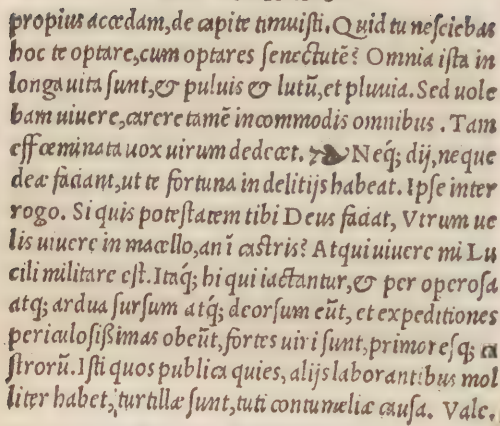 propius accedam, de capite timuisti. Quid tu nesciebas
hoc te optare, cum optares senectutē? Omnia ista in
longa uita sunt, & puluis & lutū, et pluuia. Sed uole
bam uiuere, carere tamē incommodis omnibus. Tam
effœminata uox uirum dedecet. ❧ Neq; dij, neque
deæ faciant, ut te fortuna in delitijs habeat. Ipse inter
rogo. Si quis potestatem tibi Deus faciat, Vtrum ue
lis uiuere in macello, an ī castris? Atqui uiuere mi Lu
cili militare est. Itaq; hi qui iactantur, & per operosa
atq; ardua sursum atq; deorsum eūt, et expeditiones
periculosissimas obeūt, fortes uiri sunt, primoresq; ca
strorū. Isti quos publica quies, alijs laborantibus mol
liter habet, turtillæ sunt, tuti contumeliæ causa. Vale.